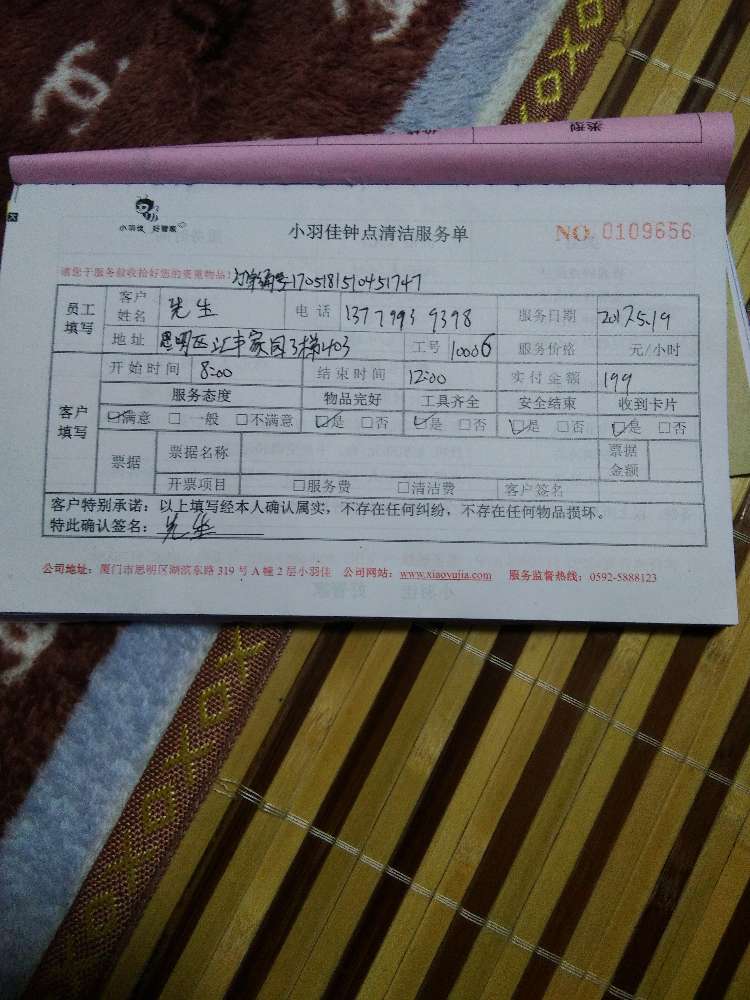 类型
小羽佳 好管家
小羽佳钟点清洁服务单
NO. 0109656
请您于服务验收拾好您的贵重物品!
订单编号1705181510451747
员工填写 客户姓名 先生 电话 13779939398 服务日期 2017.5.19
地址 思明区汇丰家园3梯403 工号 10006 服务价格 元/小时
客户填写 开始时间 8:00 结束时间 12:00 实付金额 199
服务态度 物品完好 工具齐全 安全结束 收到卡片
☑满意 □一般 □不满意 ☑是 □否 ☑是 □否 ☑是 □否 ☑是 □否
票据 票据名称 票据金额
开票项目 □服务费 □清洁费 客户签名
客户特别承诺:以上填写经本人确认属实,不存在任何纠纷,不存在任何物品损坏。
特此确认签名: 先生
公司地址:厦门市思明区湖滨东路319号A幢2层小羽佳 公司网站:www.xiaoyujia.com 服务监督热线:0592-5888123